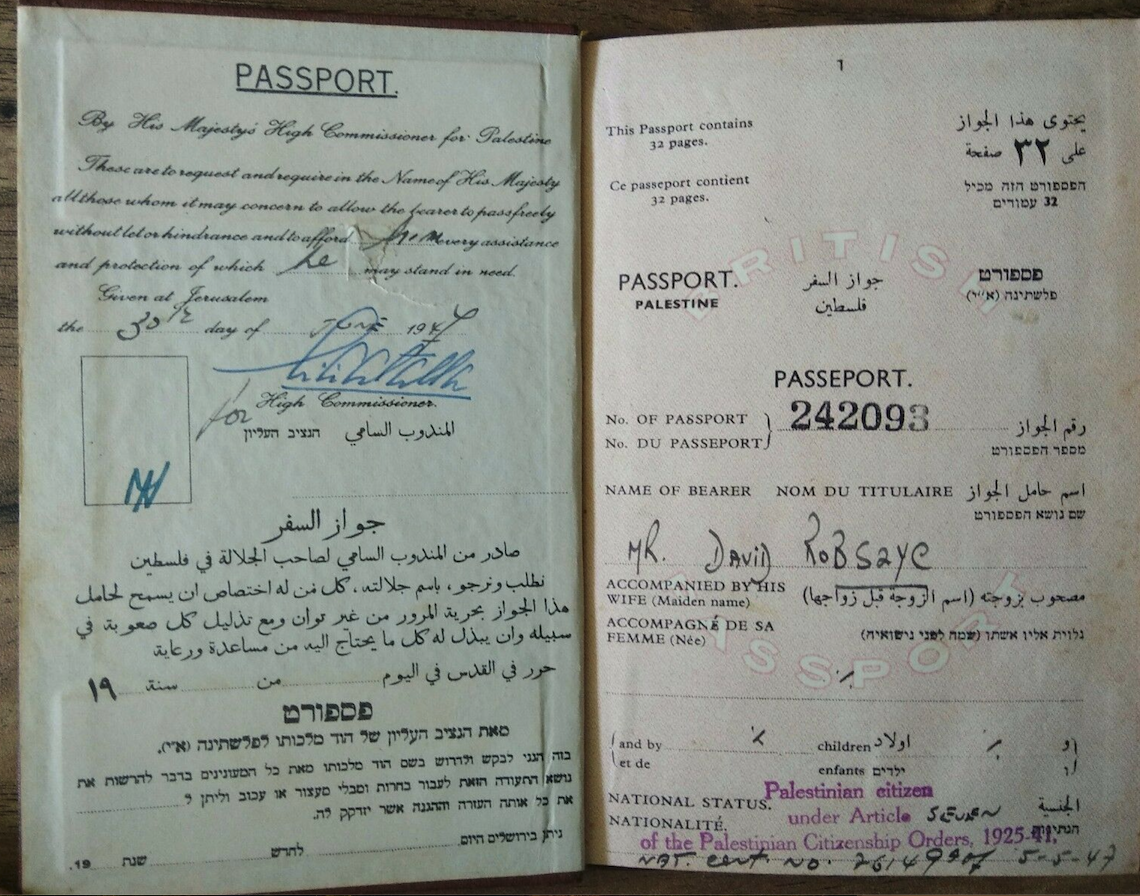 PASSPORT.
By His Majesty's High Commissioner for Palestine
These are to request and require in the Name of His Majesty
all those whom it may concern to allow the bearer to pass freely
without let or hindrance and to afford him every assistance
and protection of which he may stand in need.
Given at Jerusalem
the 30th day of June 1947
for High Commissioner.
הנציב העליון المندوب السامي
جواز السفر
صادر من المندوب السامي لصاحب الجلالة في فلسطين
نطلب ونرجو، باسم جلالته، كل من له اختصاص ان يسمح لحامل
هذا الجواز بحرية المرور من غير توان ومع تذليل كل صعوبة في
سبيله وان يبذل له كل ما يحتاج اليه من مساعدة ورعاية
حرر في القدس في اليوم من سنة ١٩
פספורט
מאת הנציב העליון של הוד מלכותו לפלשתינה (א״י).
בזה הנני לבקש ולדרוש בשם הוד מלכותו מאת כל המעונינים בדבר להרשות את
נושא התעודה הזאת לעבור בחרות ומבלי מעצור או עכוב וליתן ל
את כל אותה העזרה וההגנה אשר יזדקק לה.
ניתן בירושלים היום לחדש שנת 19.
1
This Passport contains
32 pages.
يحتوى هذا الجواز
على ٣٢ صفحة
Ce passeport contient
32 pages.
הפספורט הזה מכיל
32 עמודים
BRITISH
PASSPORT. جواز السفر פספורט
PALESTINE فلسطين פלשתינה (א״י)
PASSEPORT.
No. OF PASSPORT
No. DU PASSEPORT
242093
رقم الجواز
מספר הפספורט
NAME OF BEARER NOM DU TITULAIRE اسم حامل الجواز
שם נושא הפספורט
MR. DAVID ROBSAYE
ACCOMPANIED BY HIS
WIFE (Maiden name)
مصحوب بزوجته (اسم الزوجة قبل زواجها)
ACCOMPAGNÉ DE SA
FEMME (Née)
נלוית אליו אשתו (שמה לפני נישואיה)
PASSPORT
and by children اولاد و
et de enfants ילדים ו
NATIONAL STATUS. الجنسية
NATIONALITÉ.
Palestinian citizen
under Article SEVEN
of the Palestinian Citizenship Orders, 1925-41.
NAT. cert no. 26149 of 5-5-47